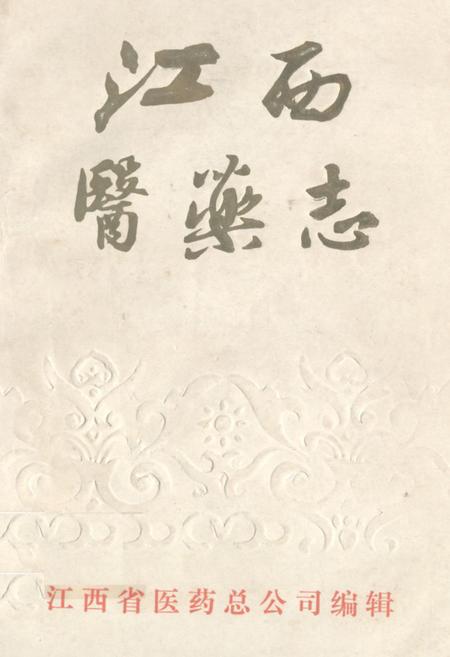 江西
醫藥志
江西省医药总公司编辑